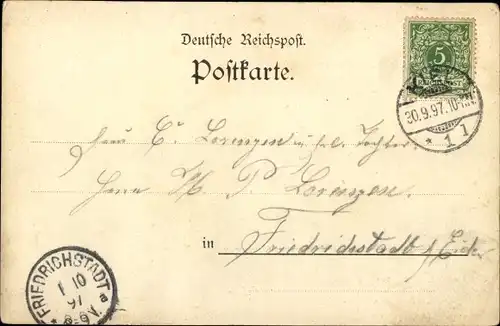 Deutsche Reichspost.
Postkarte.
5
KIEL
30.9.97.10-11V.
* 1 l
Herrn C. Lorenzen u. frl. Tochter.
Herrn H. P. Lorenzen.
in Friedrichstadt a/ Eider
FRIEDRICHSTADT
1 10
97
* 8-9V. a